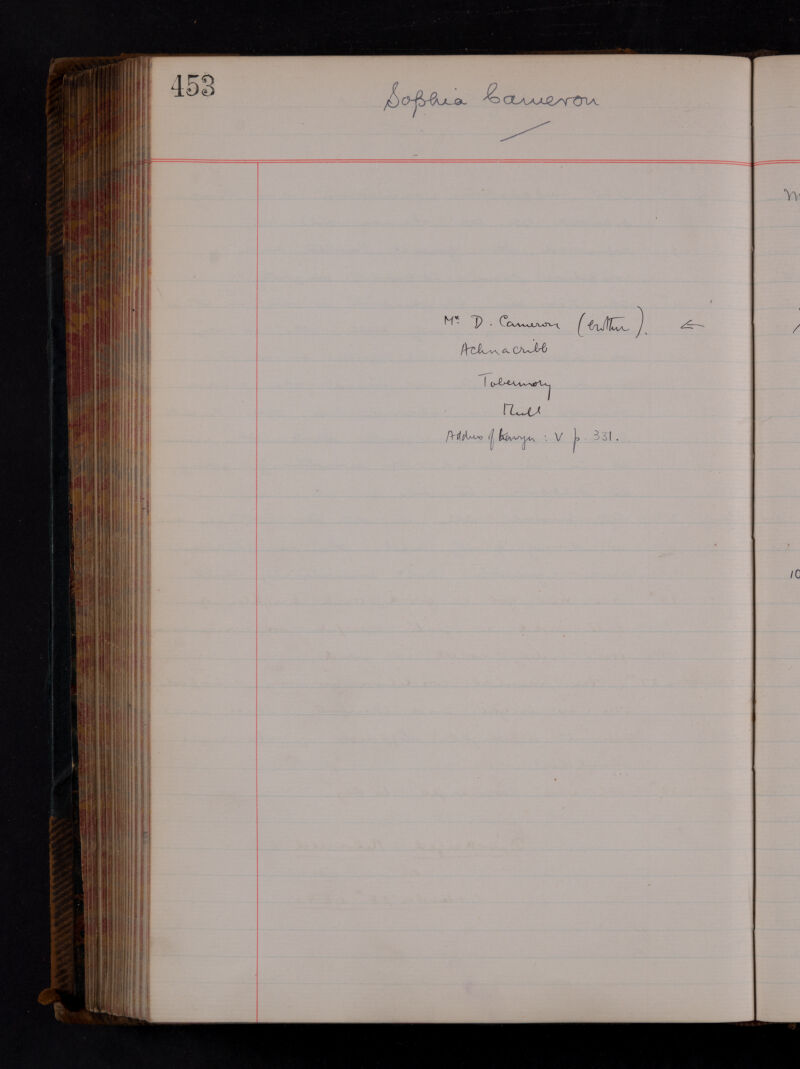 453
Sophia Cameron
Mr. D. Cameron (brother). ←
Achnacribb
Tobermory
Mull
Address of : V p. 331.
10